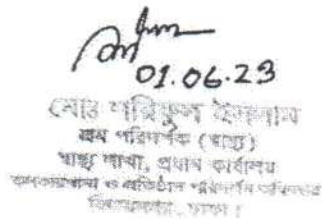 01.06.23
মোঃ শরিফুল ইসলাম
শ্রম পরিদর্শক (স্বাস্থ্য)
স্বাস্থ্য শাখা, প্রধান কার্যালয়
কলকারখানা ও প্রতিষ্ঠান পরিদর্শন অধিদপ্তর
ঢাকা।